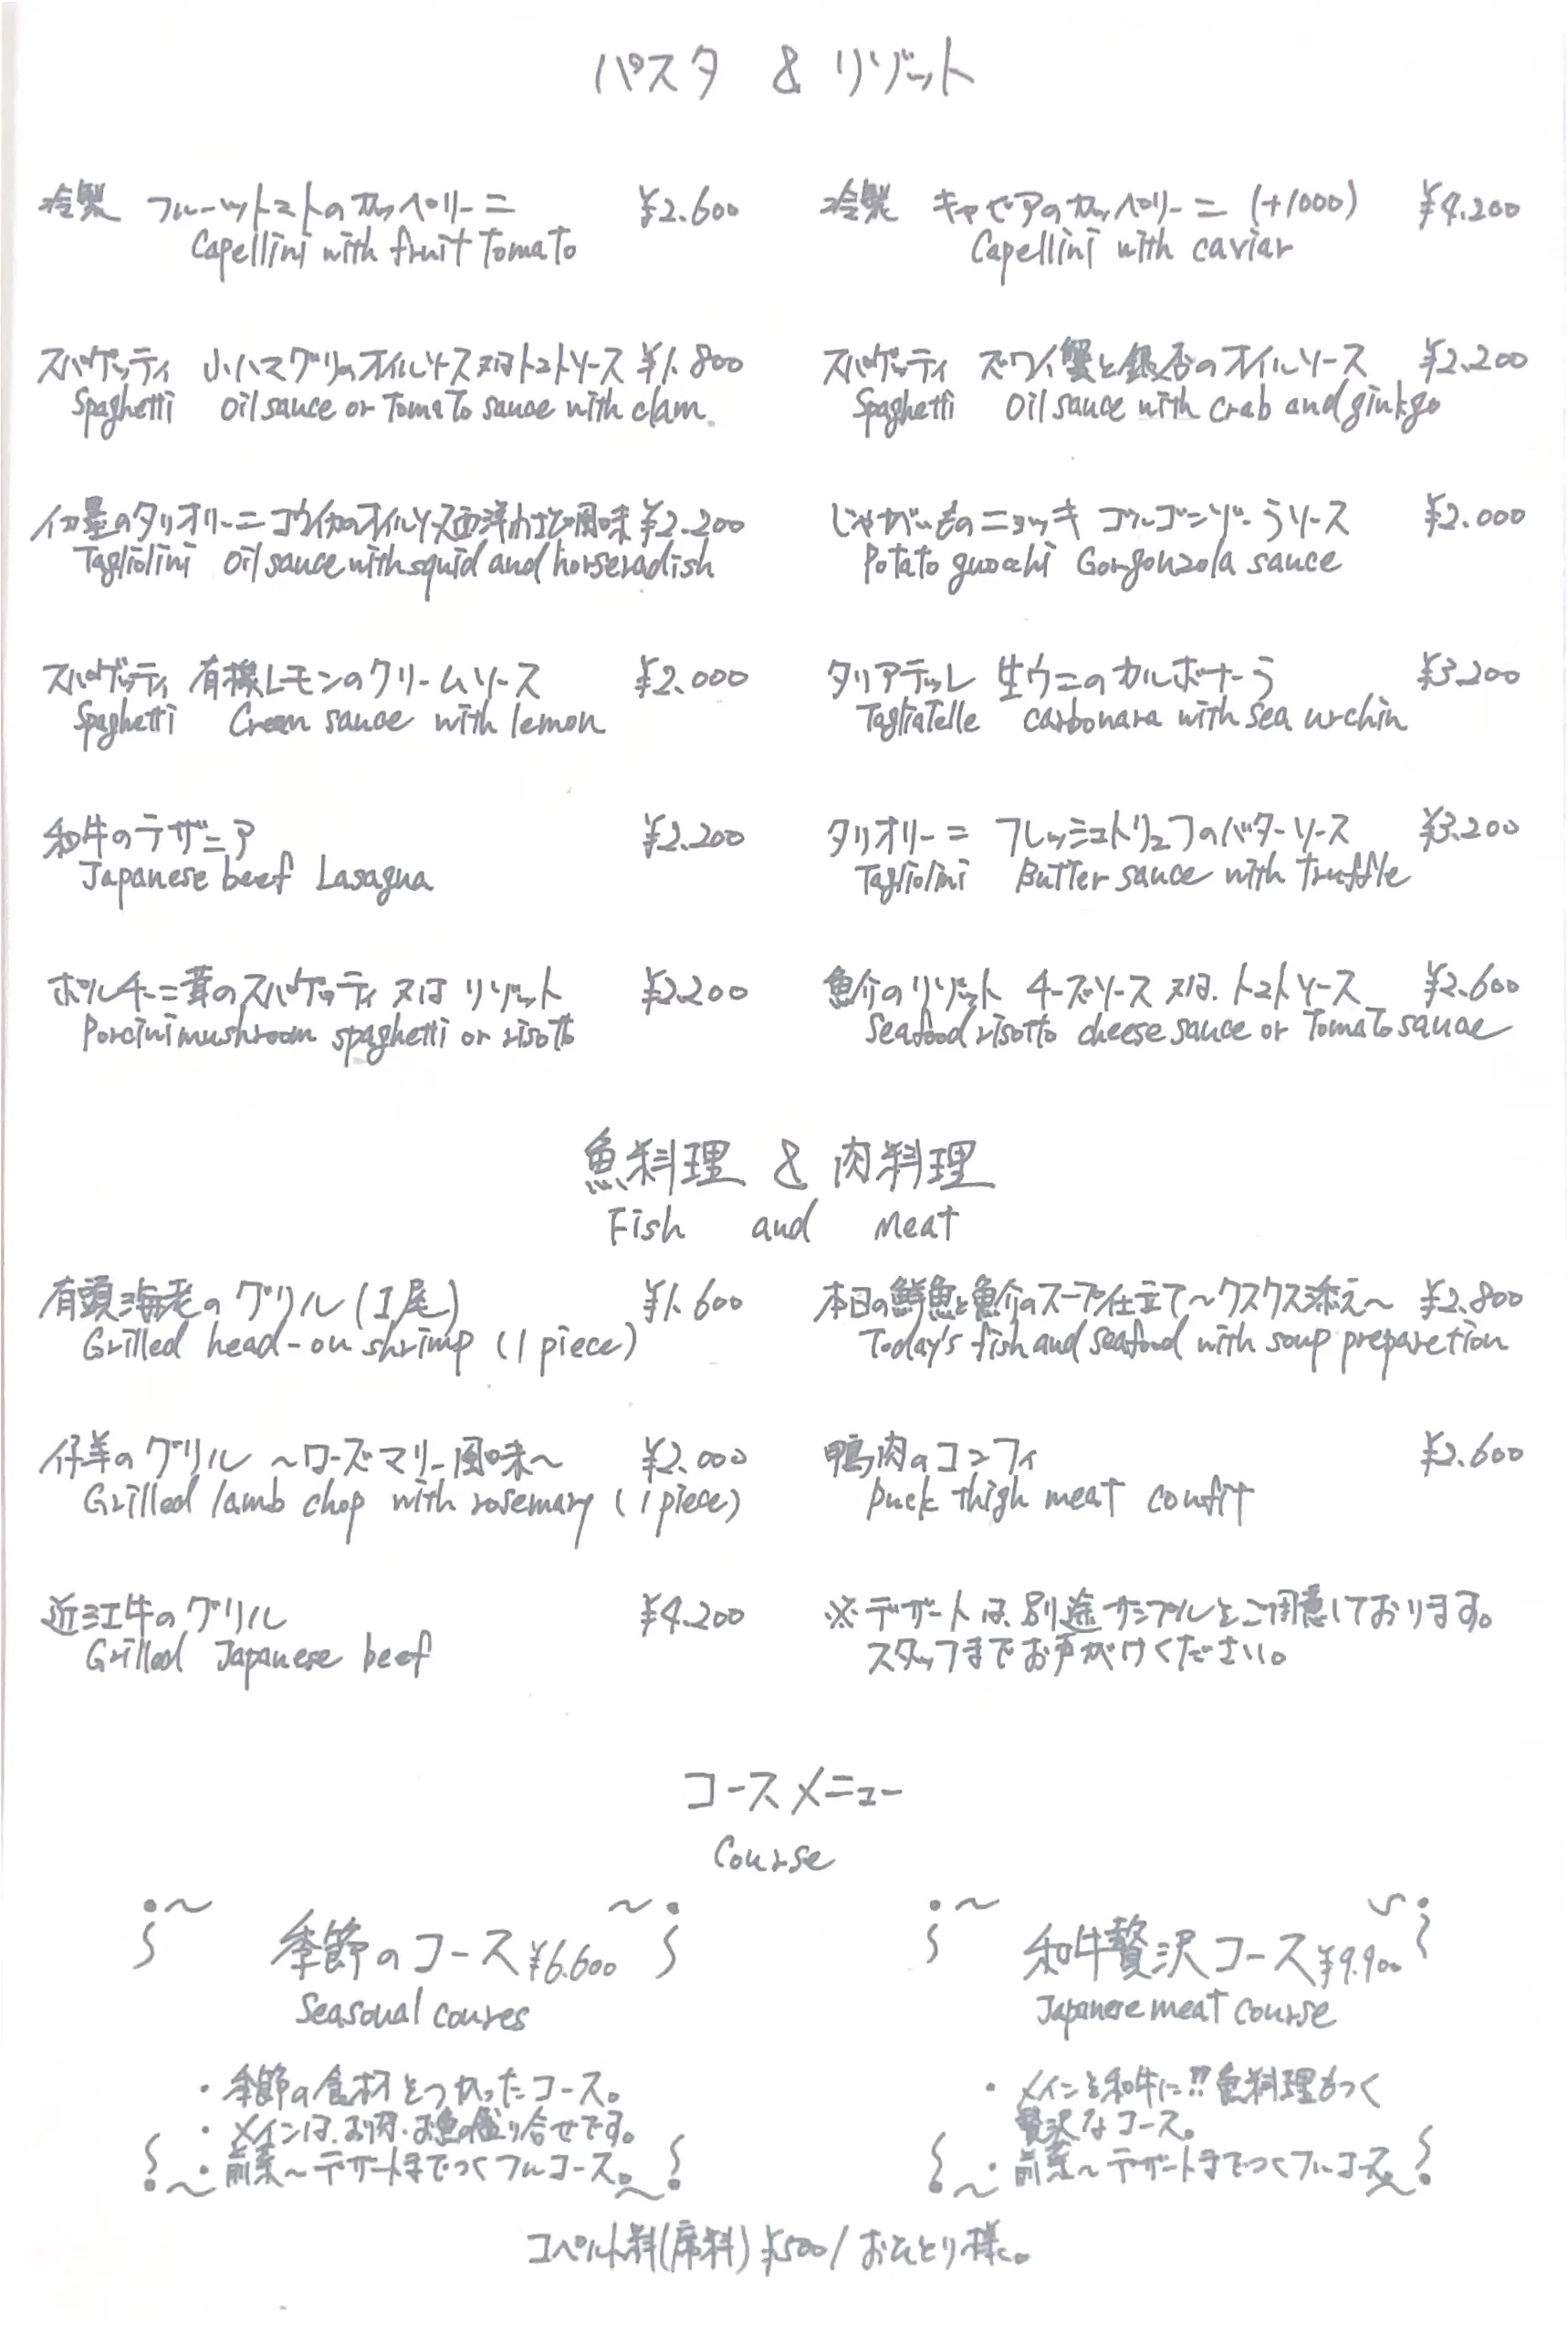 パスタ & リゾット
冷製 フルーツトマトのカッペリーニ ¥2.600
Capellini with fruit Tomato
冷製 キャビアのカッペリーニ (+1000) ¥4.200
Capellini with caviar
スパゲッティ 小ハマグリのオイルソース又はトマトソース ¥1.800
Spaghetti Oil sauce or Tomato sauce with clam.
スパゲッティ ズワイ蟹と銀杏のオイルソース ¥2.200
Spaghetti Oil sauce with crab and ginkgo
イカ墨のタリオリーニ コウイカのオイルソース西洋わさび風味 ¥2.200
Tagliolini Oil sauce with squid and horseradish
じゃがいものニョッキ ゴルゴンゾーラソース ¥2.000
Potato gnocchi Gorgonzola sauce
スパゲッティ 有機レモンのクリームソース ¥2.000
Spaghetti Cream sauce with lemon
タリアテッレ 生ウニのカルボナーラ ¥3.200
Tagliatelle carbonara with sea urchin
和牛のラザニア ¥2.200
Japanese beef Lasagna
タリオリーニ フレッシュトリュフのバターソース ¥3.200
Tagliolini Butter sauce with truffle
ポルチーニ茸のスパゲッティ又は リゾット ¥2.200
Porcini mushroom spaghetti or risotto
魚介のリゾット チーズソース又は、トマトソース ¥2.600
Seafood risotto cheese sauce or Tomato sauce
魚料理 & 肉料理
Fish and meat
有頭海老のグリル (1尾) ¥1.600
Grilled head-on shrimp (1 piece)
本日の鮮魚と魚介のスープ仕立て～クスクス添え～ ¥2.800
Today's fish and seafood with soup preparetion
仔羊のグリル ～ローズマリー風味～ ¥2.000
Grilled lamb chop with rosemary (1 piece)
鴨肉のコンフィ ¥2.600
Duck thigh meat confit
近江牛のグリル ¥4.200
Grilled Japanese beef
※デザートは、別途サンプルをご用意しております。
スタッフまでお声がけください。
コースメニュー
Course
季節のコース ¥6.600
Seasonal coures
・季節の食材をつかったコース。
・メインは、お肉・お魚の盛り合せです。
・前菜～デザートまでつくフルコース。
和牛贅沢コース ¥9.900
Japanese meat course
・メインを和牛に!!魚料理もつく
贅沢なコース。
・前菜～デザートまでつくフルコース。
コペルト料(席料) ¥500/おひとり様。